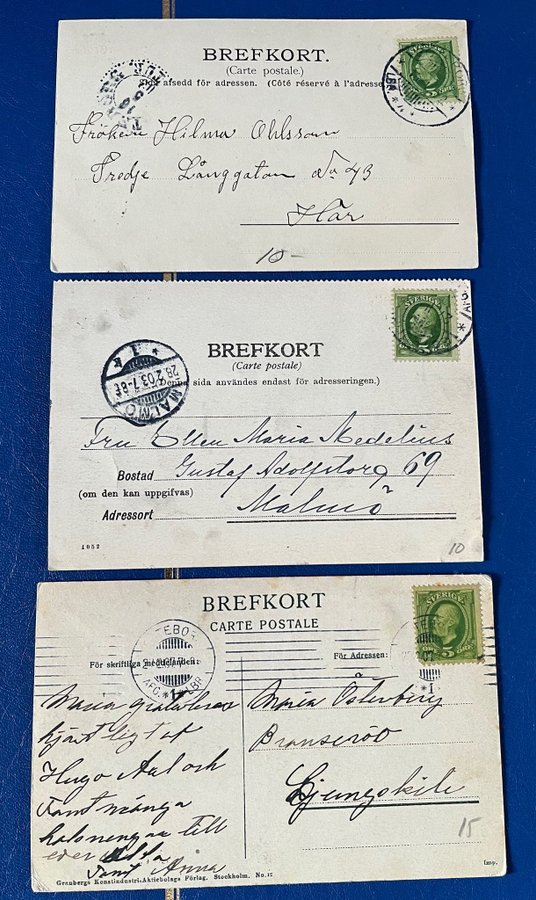 BREFKORT.
(Carte postale.)
afsedd för adressen. (Côté réservé à l'adresse
SVERIGE
5
LBR
Fröken Hilma Ohlsson
Tredje Långgatan No 43
Här
10-
BREFKORT
(Carte postale)
Denna sida användes endast för adresseringen.)
SVERIGE
5
28.2.03.7-8F
MALMÖ
Fru Ellen Maria Medelius
Bostad Gustaf Adolfstorg 69
(om den kan uppgifvas)
Adressort Malmö
1052
10
BREFKORT
CARTE POSTALE
För skriftliga meddelanden:
För Adressen:
SVERIGE
5 ÖRE
EBO
AFG. *1* LBR
Maria
hjärtligt af
Hugo Axl och
Tant många
till
eder
Tant Anna
Maria Österberg
Ljungskile
15
Granbergs Konstindustri-Aktiebolags Förlag. Stockholm. No. 15
Imp.